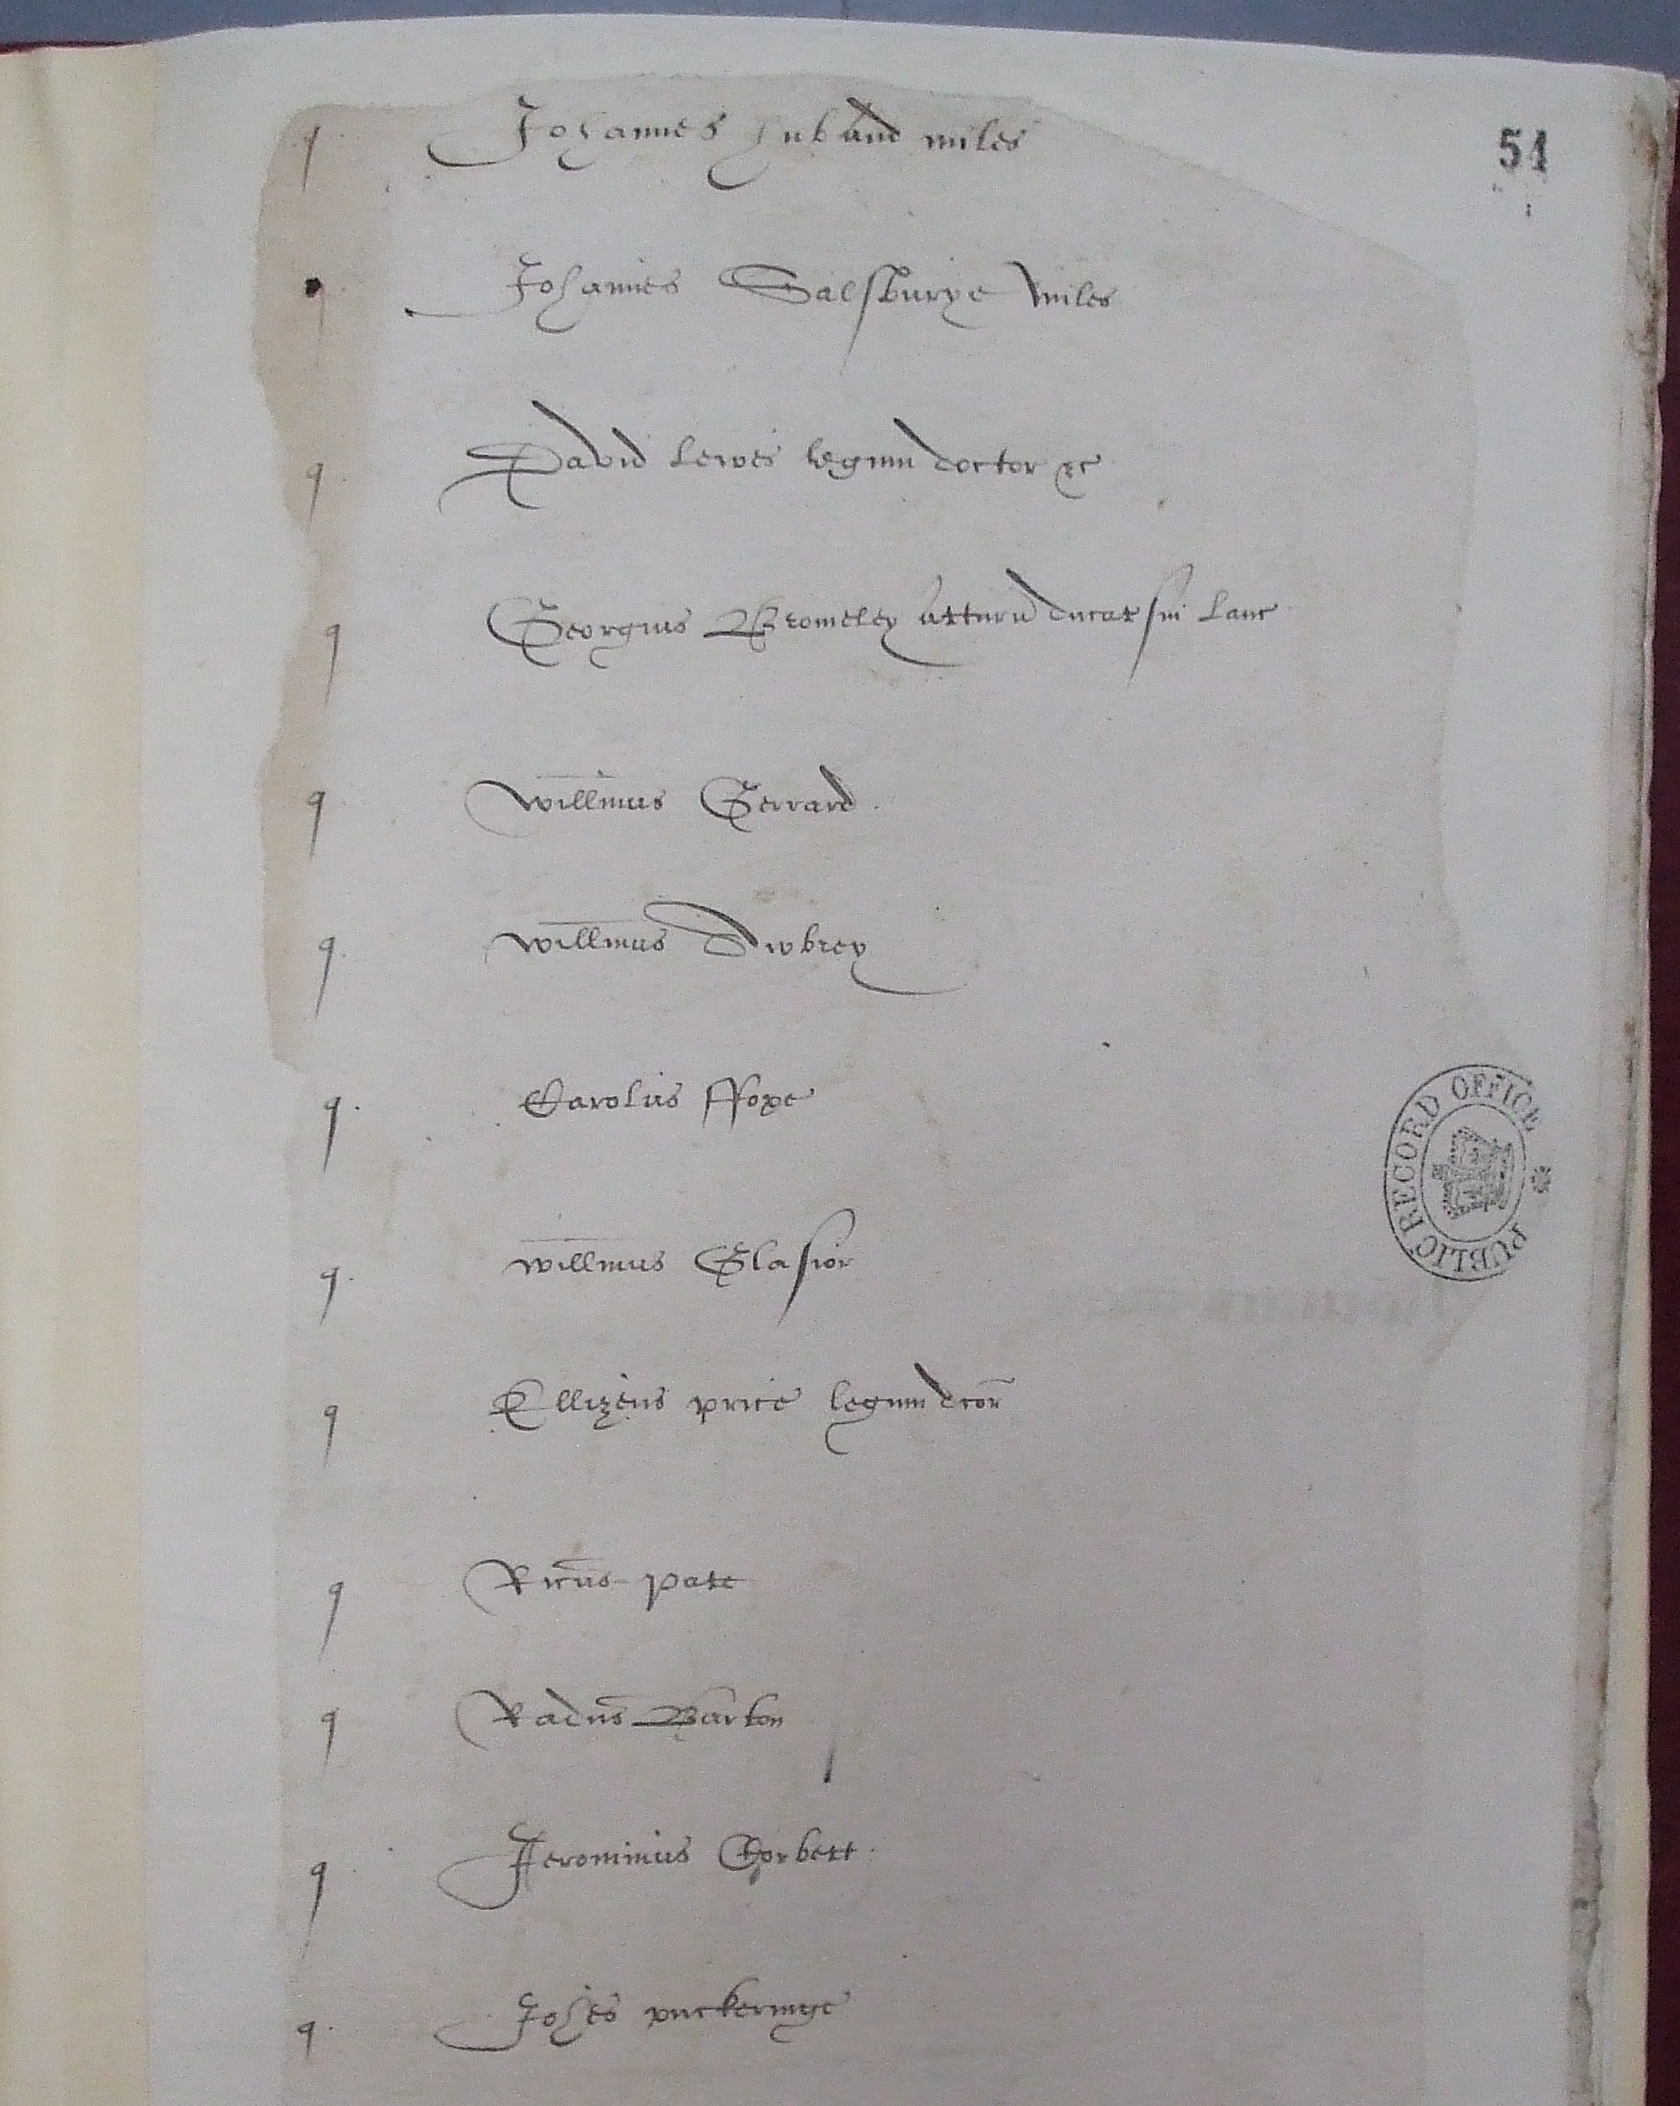 51
q Johannes Huband miles
q Johannes Salsburye miles
q David Lewes legum doctor &c
q Georgius Bromeley atturn ducat sui Lanc
q Willmus Gerrard
q. Willmus Awbrey
q. Carolus ffoxe
PUBLIC RECORD OFFICE
q. Willmus Glasior
q Ellizeus price legum dcor
q Ricus pate
q Radus Barton
q Jerominus Corbett
q. Johes puckeringe